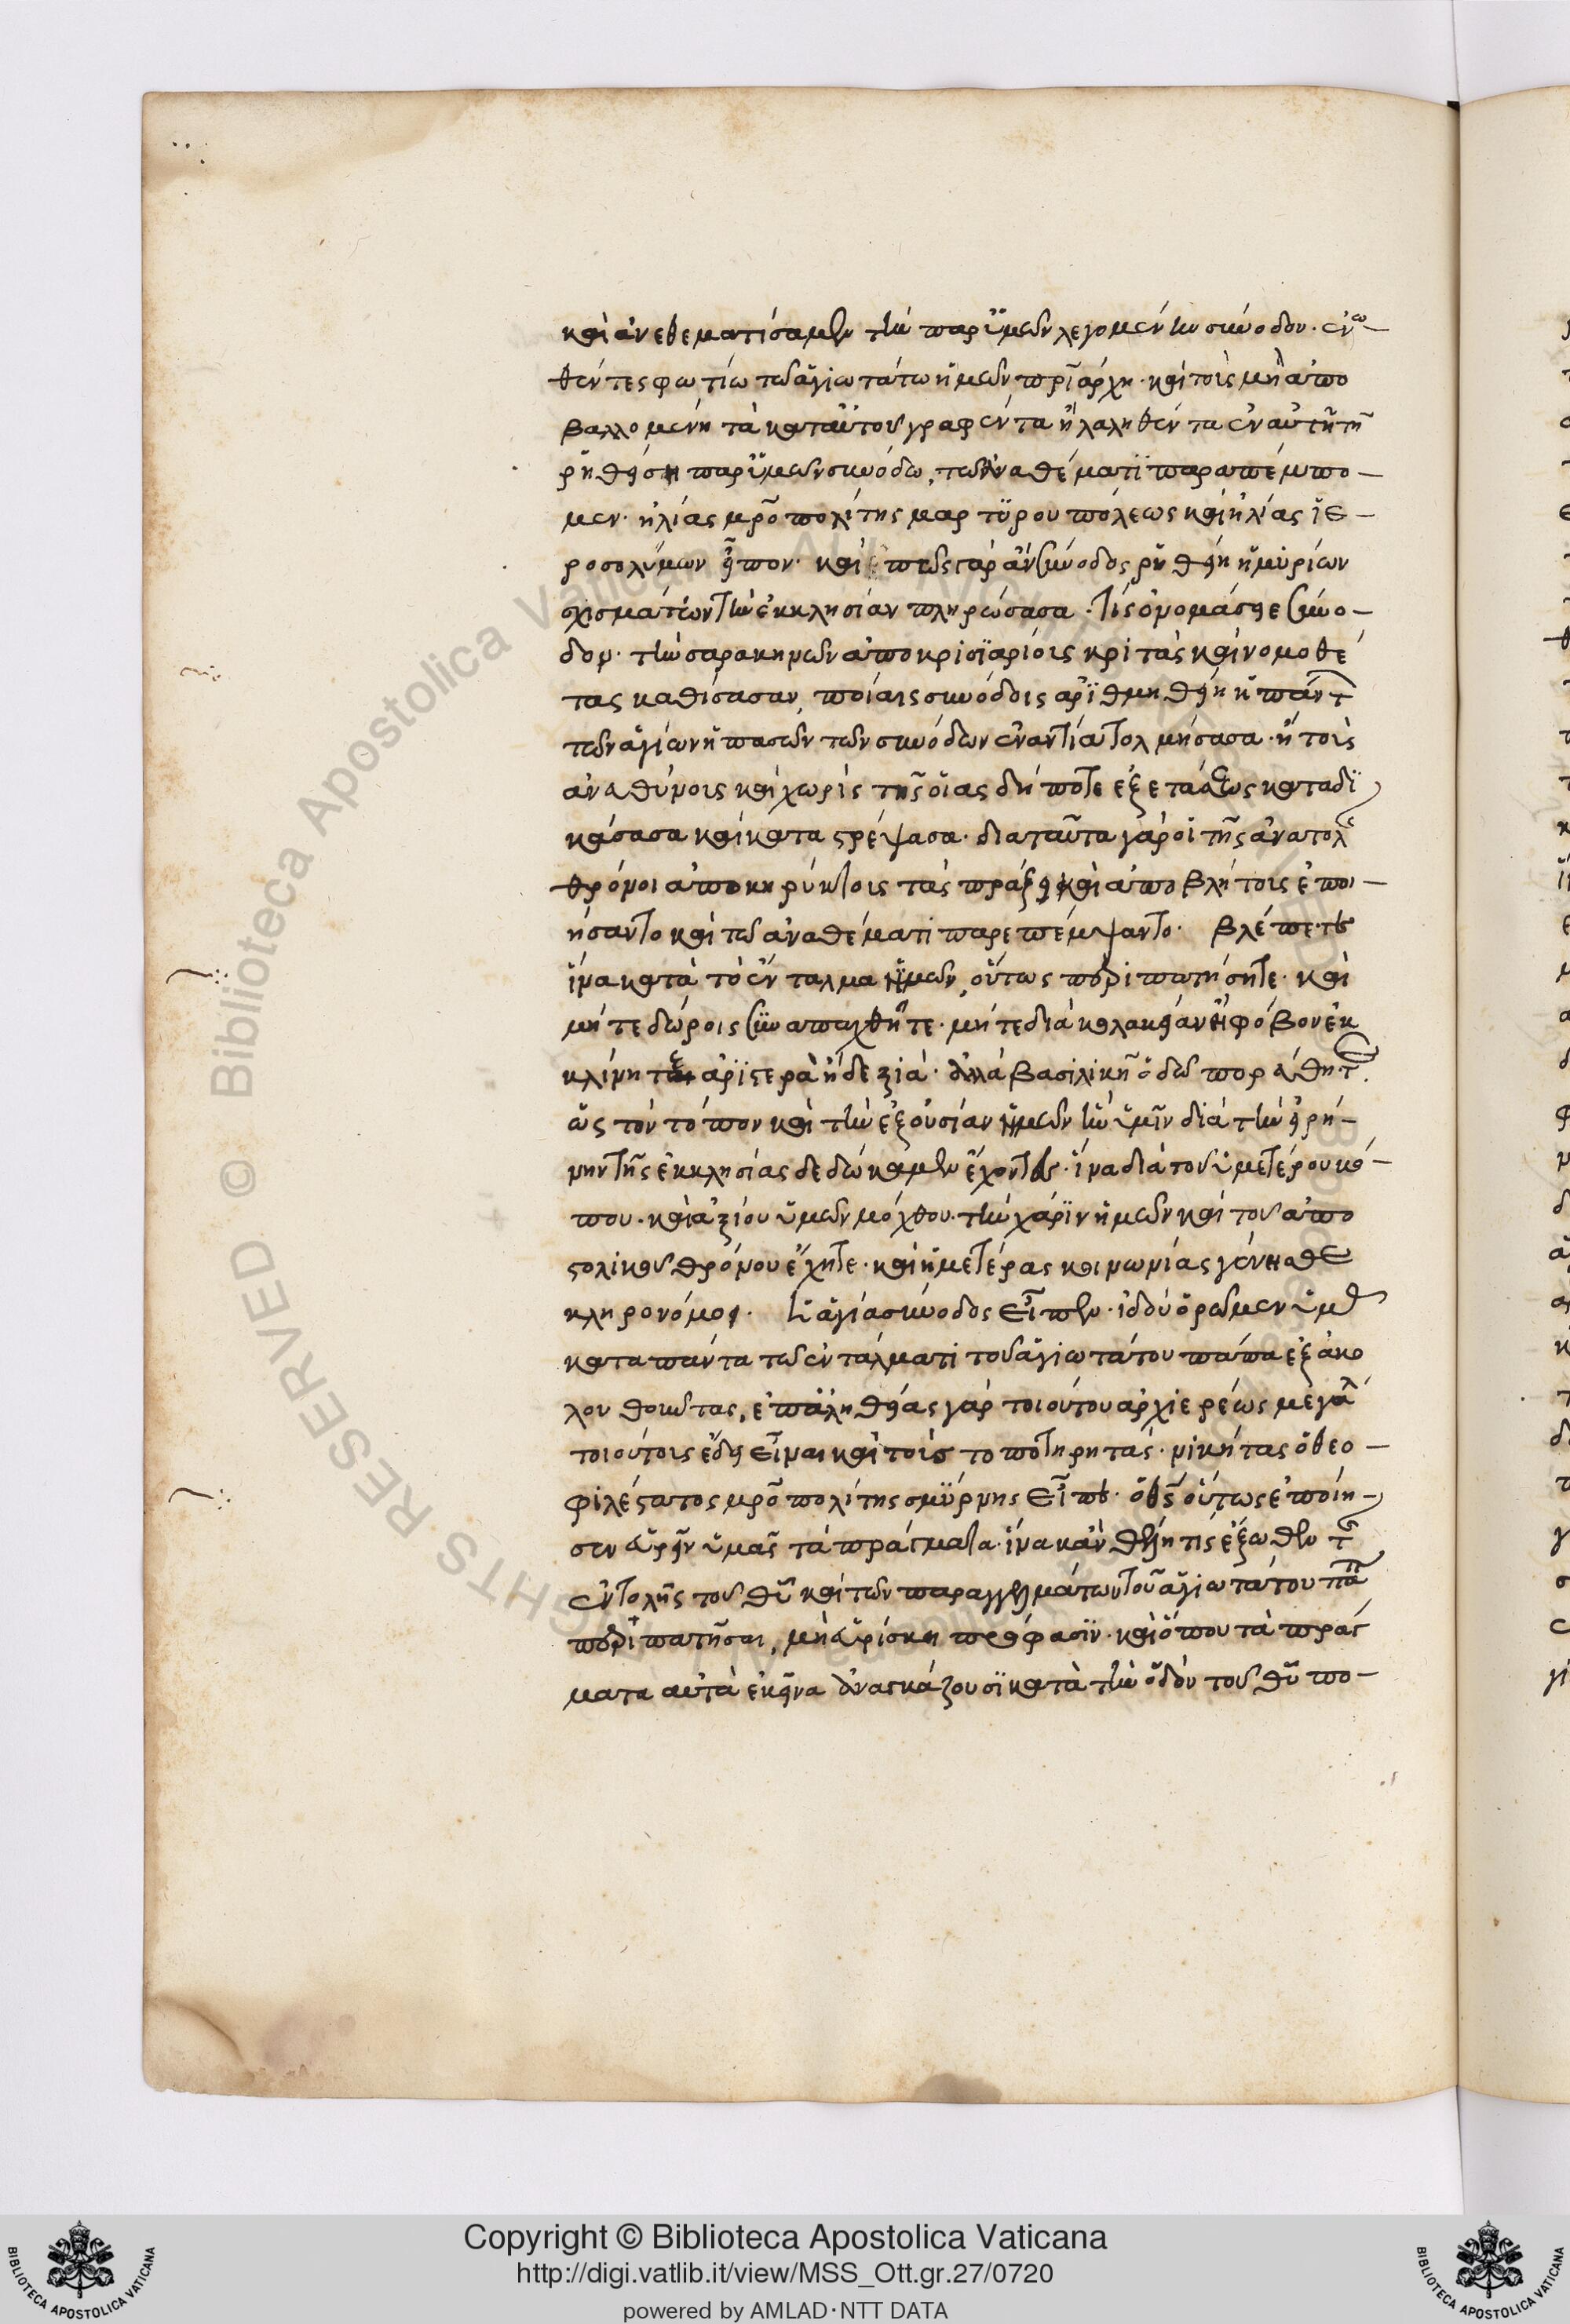 καὶ ἀνεθεματίσαμεν τὴν παρ ὑμῶν λεγομένην σύνοδον· ἑνω–
θέντες φωτίω τῶ ἁγιωτάτω ἡμῶν πριάρχη· καὶ τοῖς μὴ ἀπο
βαλλομένη τὰ κατ αὐτοῦ γραφέντα ἢ λαληθέντα ἐν αὐτῆ τῆ
ρηθείση παρ ὑμῶν συνόδω, τῶ ἀναθέματι παραπέμπο–
μεν· ἠλίας μρο πολίτης μαρτυρουπόλεως καὶ ἠλίας ἱε–
ροσολύμων εἶπον· καὶ πῶς γὰρ ἂν σύνοδος ρηθείη ἡ μυρίων
σχισμάτων τὴν ἐκκλησίαν πληρώσασα· τίς ὀνομάσειε σύνο–
δον· τὴν σαρακηνῶν ἀποκρισιαρίοις κριτὰς καὶ νομοθέ
τας καθίσασαν, ποίαις συνόδοις ἀριθμηθείη ἡ πάντ
τῶν ἁγίων ἢ πασῶν τῶν συνόδων ἐναντία τολμήσασα· ἡ τοὺς
ἀναθύμοις καὶ χωρὶς τῆς οἵας δήποτε ἐξετάσεως καταδι
κάσασα καὶ καταστρέψασα· διαταῦτα γὰρ οἱ τῆς ἀνατολ
θρόνοι ἀποκηρύκτοις τὰς πράξεις καὶ ἀποβλήτοις ἐποι–
ήσαντο καὶ τῶ ἀναθέματι παρεπέμψαντο· βλέπετε
ἵνα κατὰ τὸ ἔνταλμα ἡμῶν, οὕτως περιπατήσητε· καὶ
μήτε δώροις συναπαχθῆτε· μήτε διὰ κολακείαν ἢ φόβον ἐκ
κλίνητε ἀριστερὰ ἢ δεξιά· ἀλλὰ βασιλικῆ ὁδῶ πορεύθητ
ὡς τὸν τόπον καὶ τὴν ἐξουσίαν ἡμῶν ἣν ὑμῖν διὰ τὴν εἰρή–
νην τῆς ἐκκλησίας δεδώκαμεν ἔχοντες· ἵνα διὰ τοῦ ὑμετέρου κό–
που· καὶ ἀξίου ὑμῶν μόχθου· τὴν χάριν ἡμῶν καὶ τοῦ ἀπο
στολικοῦ θρόνου ἔχητε· καὶ ἡμετέρας κοινωνίας γένησθε
κληρονόμοι· ἡ ἁγία σύνοδος εἶπεν· ἰδοὺ ὁρῶμεν ὑμᾶς
κατα πάντα τῶ ἐντάλματι τοῦ ἁγιωτάτου πάπα ἐξακο
λουθοῦντας, ἐπ ἀληθείας γὰρ τοιούτου ἀρχιερέως μεγάλ
τοιούτοις ἔδει εἶναι καὶ τοὺς τοποτηρητάς· νικήτας ὁ θεο–
φιλέστατος μρο πολίτης σμύρνης εἶπε· ὁ θς οὕτως ἐποίη–
σεν εὑρεῖν ὑμᾶς τὰ πράγματα· ἵνα κἂν θέλη τίς ἔξωθεν τ
ἐντολῆς τοῦ θυ καὶ τῶν παραγγελμάτων τοῦ ἁγιωτάτου παπ
περιπατῆσαι, μὴ εὑρίσκη πρόφασιν· καὶ ὅπου τὰ πράγ
ματα αὐτὰ ἐκεῖνα ἀναγκάζουσι κατὰ τὴν ὁδὸν τοῦ θυ πο–
Copyright © Biblioteca Apostolica Vaticana
http://digi.vatlib.it/view/MSS_Ott.gr.27/0720
powered by AMLAD·NTT DATA